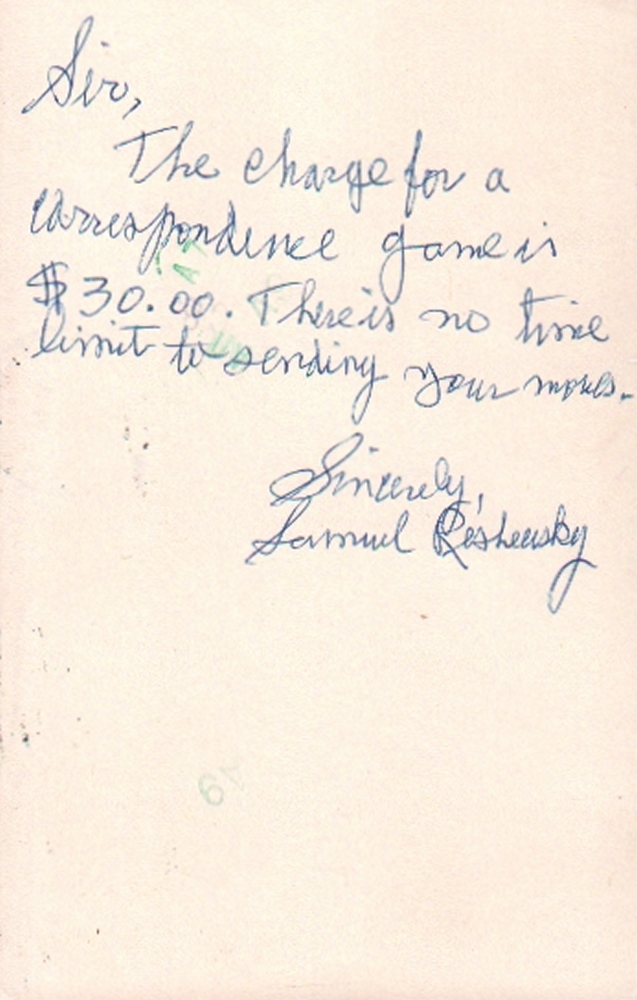 Sir,
The charge for a
correspondence game is
$30.00. There is no time
limit to sending your moves.
Sincerely,
Samuel Reshevsky